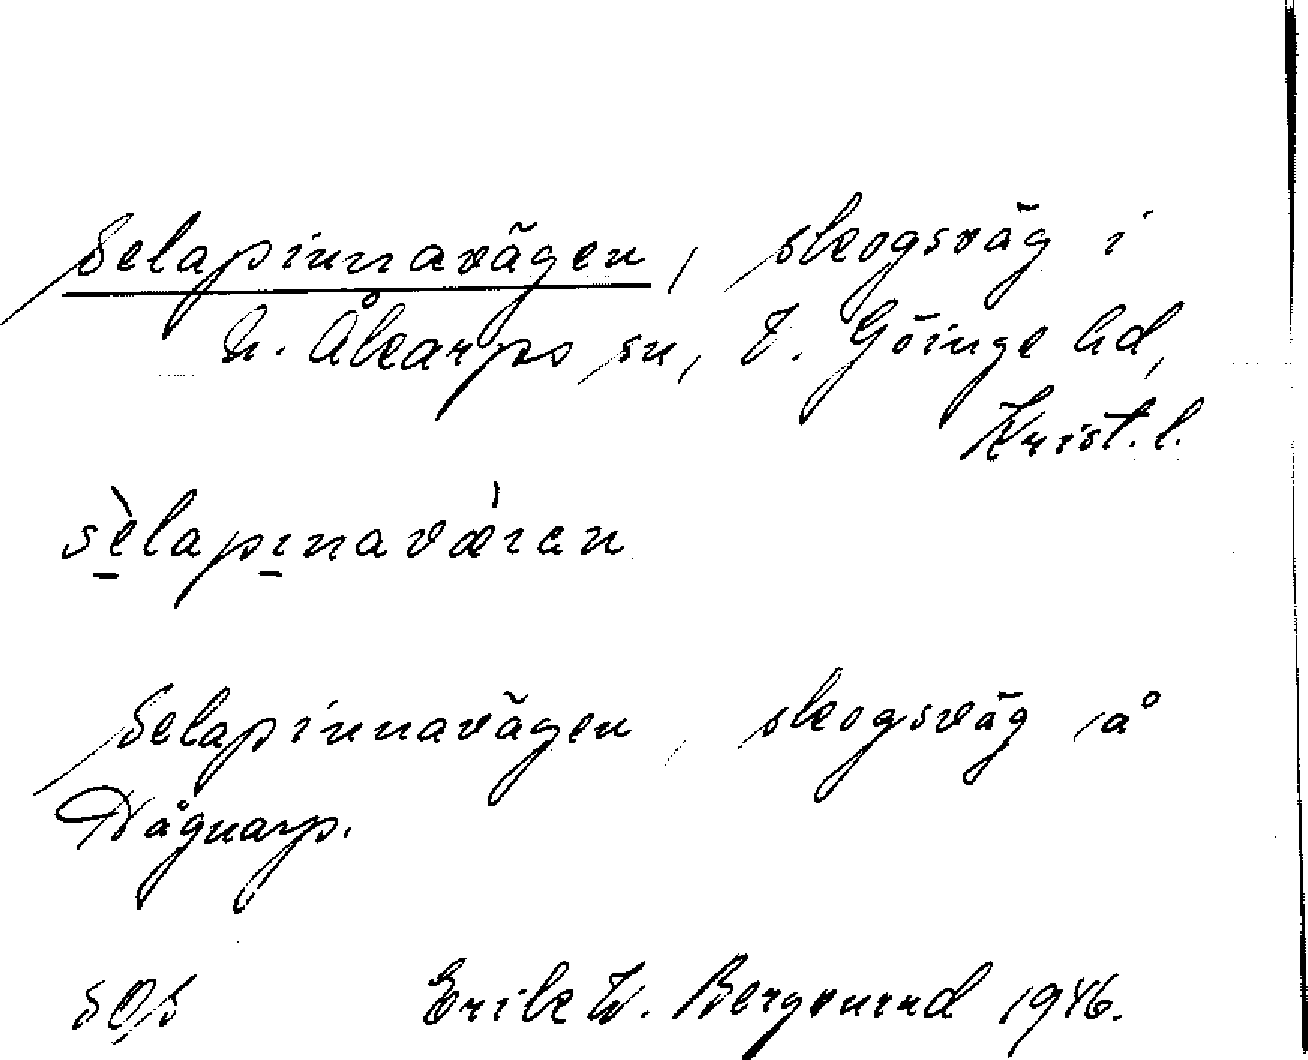 Selapinnavägen, skogsväg i
N. Åkarps sn, V. Göinge hd,
Krist. l.
sèlapınavǽıan
Selapinnavägen, skogsväg å
Vågnarp.
SOS Erik W. Bergenrud 1946.